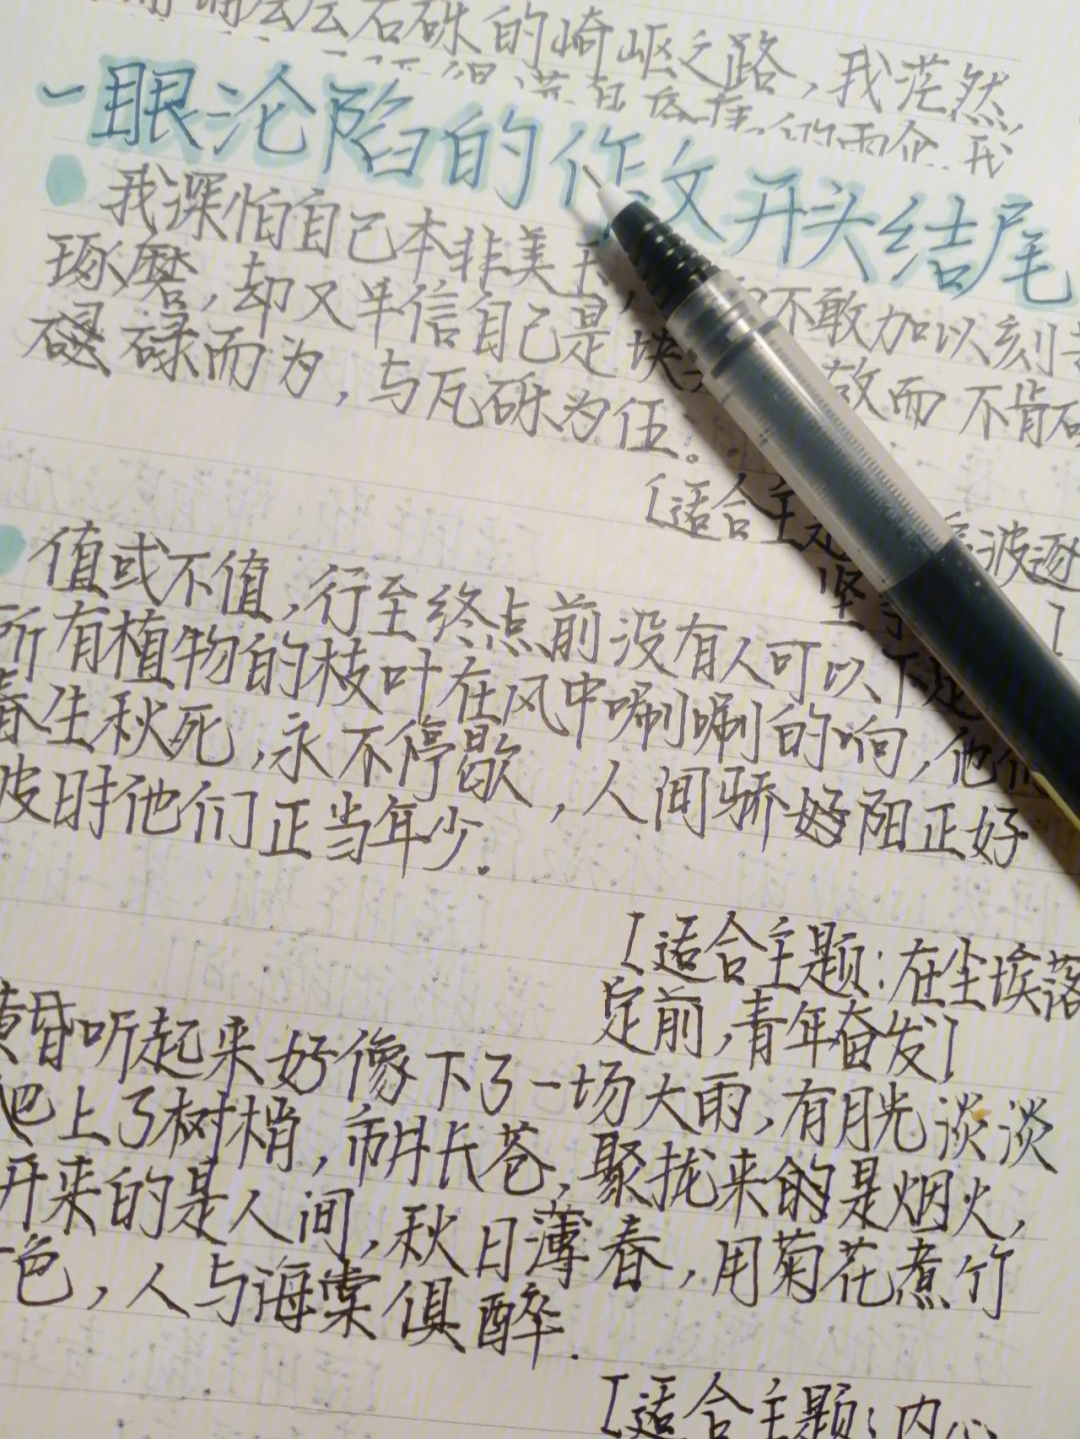 石砾的崎岖之路，我茫然
一眼沦陷的作文开头结尾
我深怕自己本非美 不敢加以刻
琢磨，却又半信自己是块 故而不肯
碌而为，与瓦砾为伍。
[适合主 波逐
坚
]
值或不值，行至终点前没有人可以下定
所有植物的枝叶在风中唰唰的响，他们
春生秋死，永不停歇，人间骄好阳正好
彼时他们正当年少.
[适合主题:在尘埃落
定前,青年奋发]
黄昏听起来好像下了一场大雨,有月光淡淡
爬上了树梢,苍,聚拢来的是烟火,
开来的是人间,秋日薄春,用菊花煮竹
色,人与海棠俱醉.
[适合主题:内心